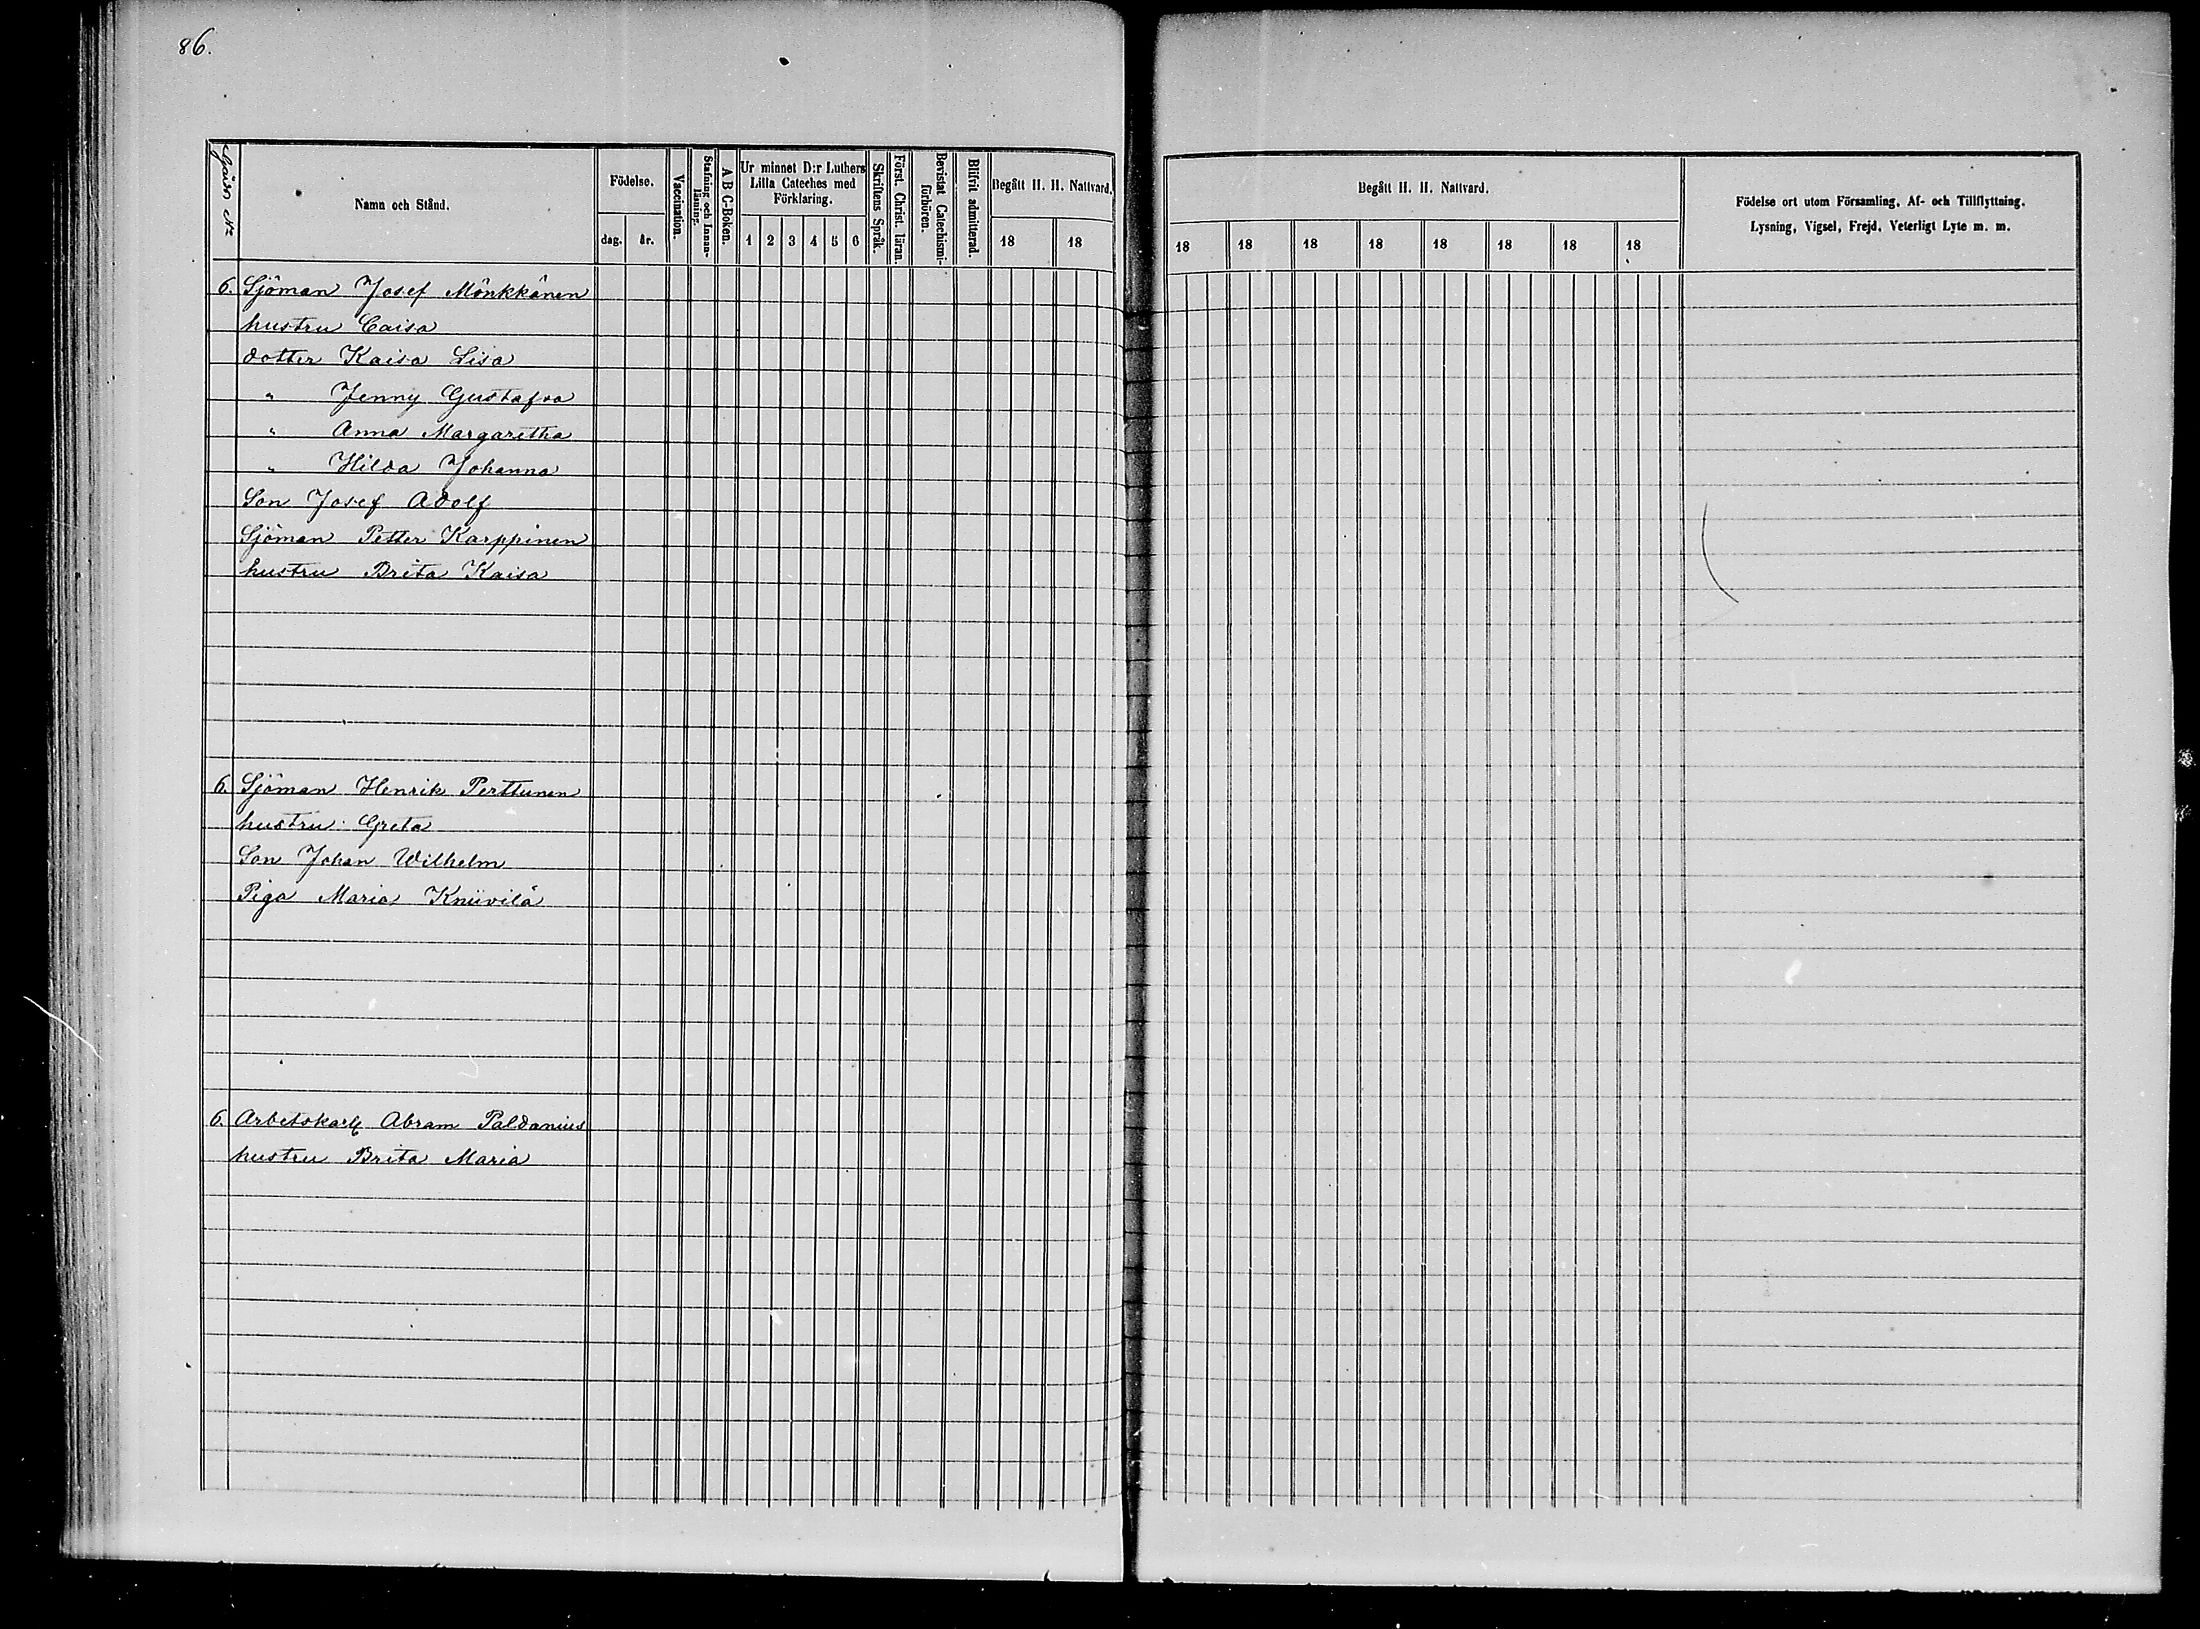 86.
Gård Nr
Namn och Stånd.
Födelse.
dag.
år.
Vaccination.
Stafning och Innan-
läsning.
A B C-Boken.
Ur minnet D:r Luthers
Lilla Cateches med
Förklaring.
1 2 3 4 5 6
Skriftens Språk.
Först. Christ. läran.
Bevistat Catechismi-
förhören.
Blifvit admitterad.
Begått H. H. Nattvard.
18 18
Begått H. H. Nattvard.
18 18 18 18 18 18 18 18
Födelse ort utom Församling, Af- och Tillflyttning.
Lysning, Vigsel, Frejd, Veterligt Lyte m. m.
6. Sjöman Josef Mönkkönen
hustru Caisa
dotter Kaisa Lisa
" Jenny Gustafva
" Anna Margaretha
" Hilda Johanna
Son Josef Adolf
Sjöman Petter Karppinen
hustru Brita Kaisa
6. Sjöman Henrik Perttunen
hustru Greta
Son Johan Wilhelm
Piga Maria Knuvilä
6. Arbetskarl Abram Paldanius
hustru Brita Maria